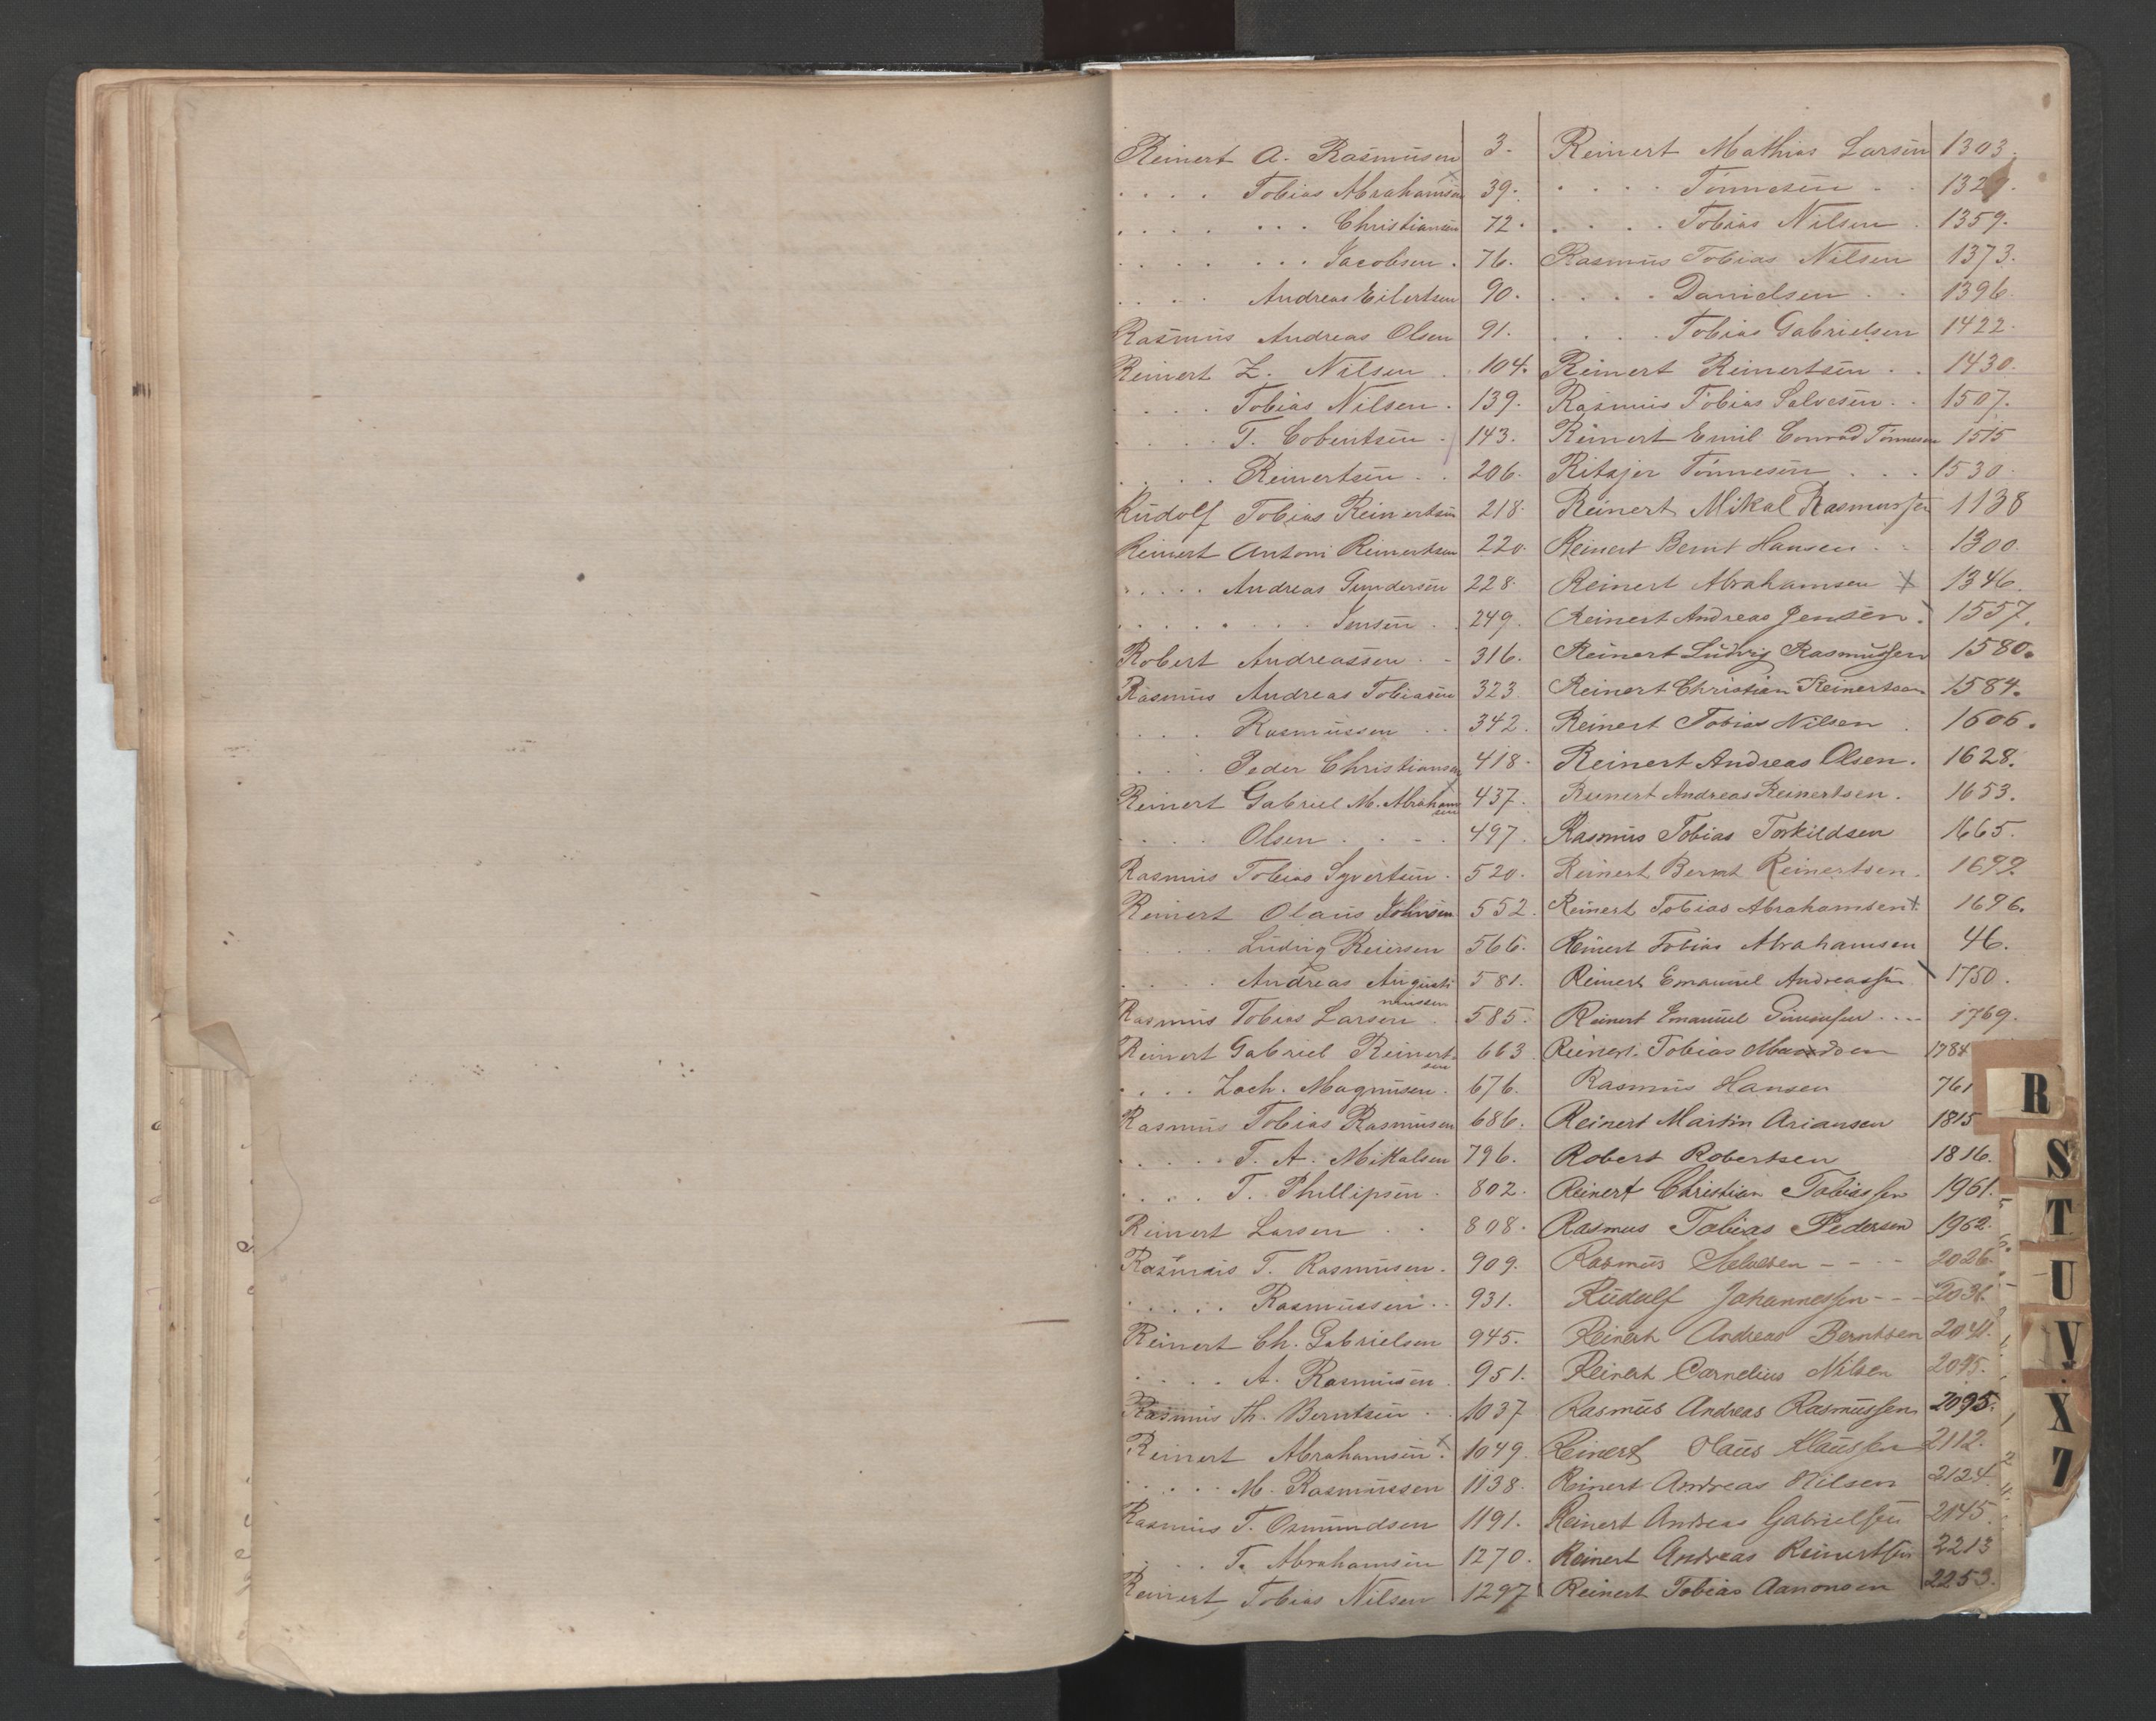 Reinert A. Rasmusen 3.
. . . . Tobias Abrahamsen × 39.
. . . . . . . Christiansen 72.
. . . . . . . Jacobsen . 76.
. . . . Andreas Eilertsen 90.
Rasmus Andreas Olsen 91.
Reinert Z. Nilsen . 104.
. . . . Tobias Nilsen . 139.
. . . . T. . 143.
. . . . Reinertsen . . 206.
Rudolf Tobias Reinertsen 218.
Reinert Antoni Reinertsen 220.
. . . . . Andreas Gundersen 228.
. . . . . . . . Jensen . . 249.
Robert Andreassen . . 316.
Rasmus Andreas Tobiasen 323.
. . . . Rasmussen . . 342.
. . . . Peder Christiansen 418.
Reinert Gabriel M. Abraham × 437.
sen
. . . . Olsen . . . . 497.
Rasmus Tobias Syvertsen . 520.
Reinert Olaus Johnsen 552.
. . . . Ludvig Reiersen 566.
. . . . Andreas Augusti 581.
nussen
Rasmus Tobias Larsen . 585.
Reinert Gabriel Reinert 663.
sen
. . . . Zach. Magnusen . 676.
Rasmus Tobias Rasmusen 686.
. . . . . T. A. Mikalsen 796.
. . . . T. Phillipsen . 802.
Reinert Larsen . . 808.
Rasmus T. Rasmusen . 909.
. . . . . Rasmussen . . 931.
Reinert Ch. Gabrielsen 945.
. . . . A. Rasmusen . 951.
Rasmus Th. Berntsen . . 1037
Reinert Abrahamsen × . 1049.
. . . . . M. Rasmussen 1138.
Rasmus T. Osmundsen 1191.
. . . . T. Abrahamsen 1270.
Reinert Tobias Nilsen 1297
Reinert Mathias Larsen 1303.
. . . . Tönnesen . . 1329.
. . . . Tobias Nilsen . 1359.
Rasmus Tobias Nilsen 1373.
. . . . Danielsen . . 1396.
. . . . Tobias Gabrielsen 1422.
Reinert Reinertsen . . 1430.
Rasmus Tobias Salvesen . . 1507.
Reinert Emil Conrad Tönnesen 1515
Tönnesen . . . 1530.
Reinert Mikal Rasmussen 1138
Reinert Bernt Hansen . . 1300.
Reinert Abrahamsen × 1346.
Reinert Andreas Jensen . 1557.
Reinert Ludvig Rasmussen 1580.
Reinert Christian Reinertsen 1584.
Reinert Tobias Nilsen . 1606.
Reinert Andreas Olsen . 1628.
Reinert Andreas Reinertsen . 1653.
Rasmus Tobias Torkildsen 1665.
Reinert Bernt Reinertsen .
Reinert Tobias Abrahamsen × 1696.
Reinert Tobias Abrahamsen 46.
Reinert Emanuel Andreassen 1750.
Reinert Emanuel . . . . 1769.
Reinert Tobias 1784
Rasmus Hansen 761
Reinert Martin Ariansen 1815
Robert Robertsen 1816.
Reinert Christian Tobiassen 1961.
Rasmus Tobias Pedersen 1962.
Rasmus Salvesen - - - - 2026.
Rudolf Johannessen - - - 2031.
Reinert Andreas Berntsen 2041.
Reinert Cornelius Nilsen
Rasmus Andreas Rasmussen 2095.
Reinert Olaus Klaussen 2112.
Reinert Andreas Nilsen 2124.
Reinert Andreas Gabrielsen 2145.
Reinert Andreas Reinertsen 2213
Reinert Tobias Aanonsen 2253.
R
S
T
U
V
X
Z